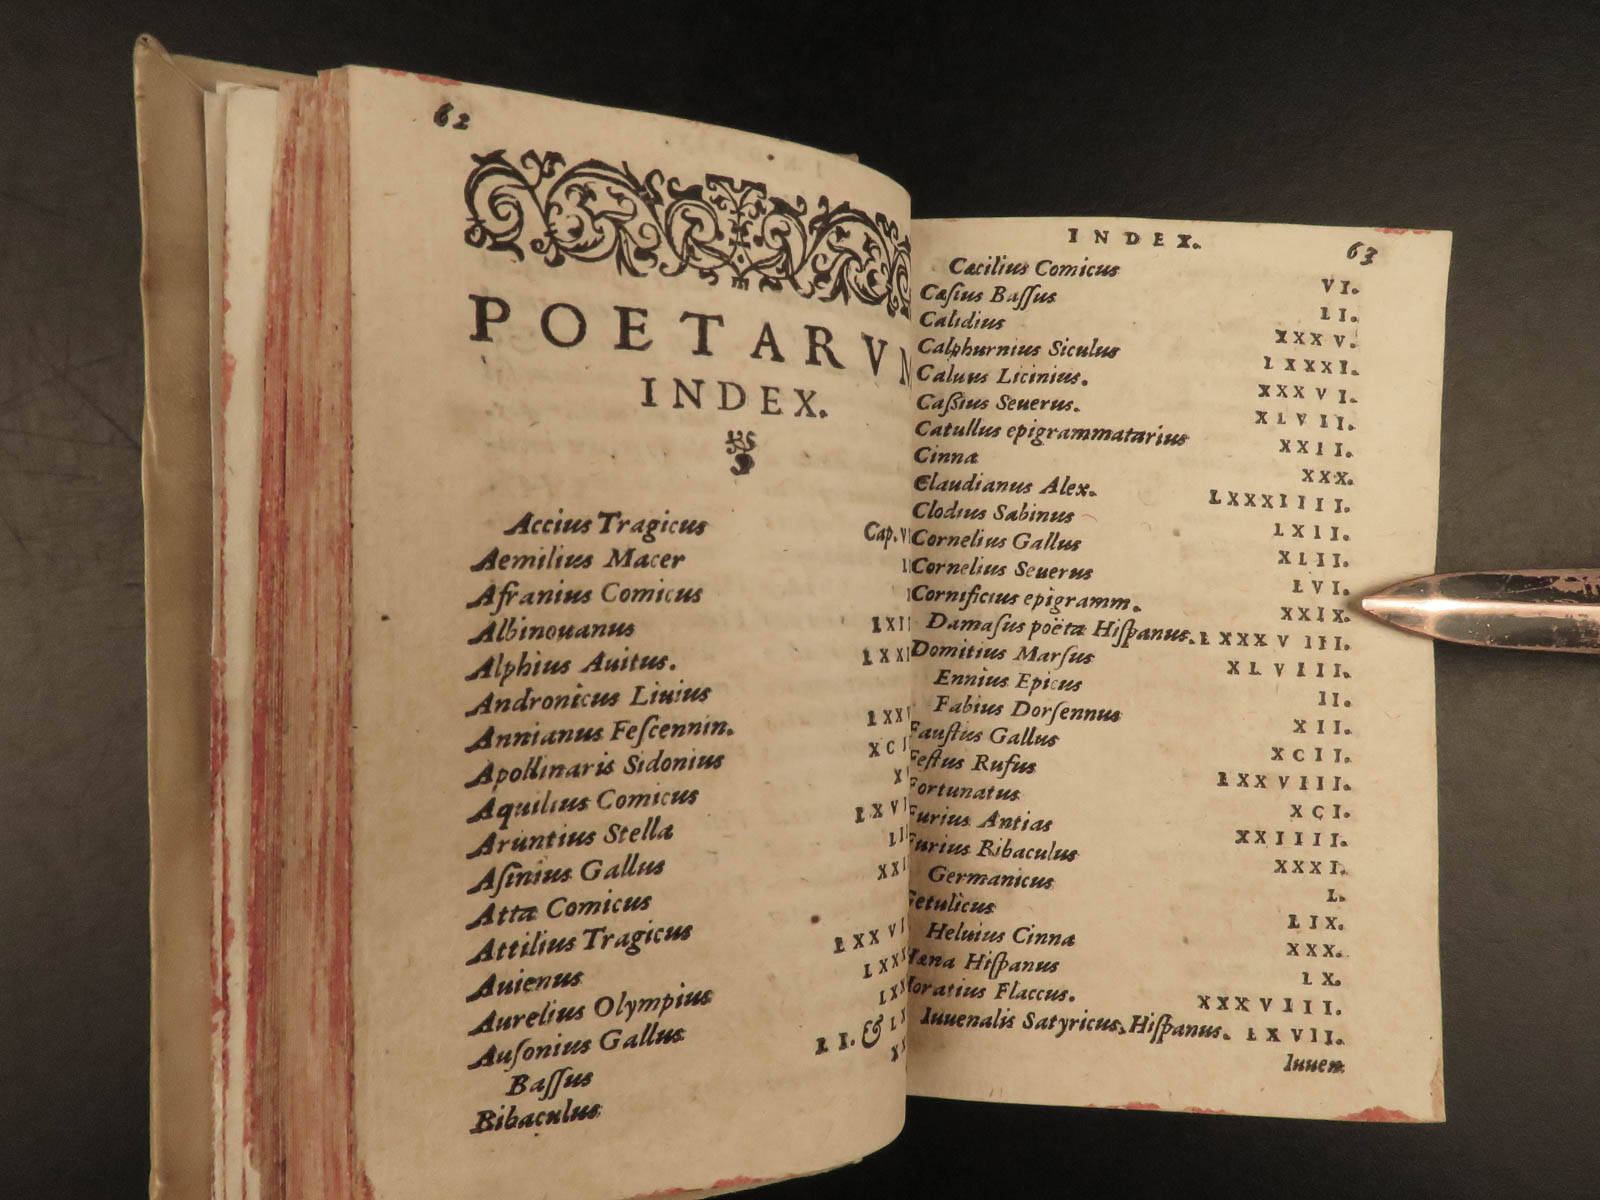 62
POETARVM
INDEX.
Accius Tragicus Cap. V
Aemilius Macer
Afranius Comicus
Albinouanus LXII
Alphius Auitus. LXXI
Andronicus Liuius
Annianus Feſcennin. LXXV
Apollinaris Sidonius XCI
Aquilius Comicus X
Aruntius Stella LXVI
Aſinius Gallus LII
Atta Comicus XXI
Attilius Tragicus
Auienus LXXVI
Aurelius Olympius LXXX
Auſonius Gallus LXX
Baſſus LI. & LX
Bibaculus XX
INDEX. 63
Cæcilius Comicus VI.
Cæſius Baſſus LI.
Calidius XXXV.
Calphurnius Siculus LXXXI.
Caluus Licinius. XXXVI.
Caſsius Seuerus. XLVII.
Catullus epigrammatarius XXII.
Cinna XXX.
Claudianus Alex. LXXXIIII.
Clodius Sabinus LXII.
Cornelius Gallus XLII.
Cornelius Seuerus LVI.
Cornificius epigramm. XXIX.
Damaſus poëta Hiſpanus. LXXXVIII.
Domitius Marſus XLVIII.
Ennius Epicus II.
Fabius Dorſennus XII.
Fauſtus Gallus XCII.
Feſtus Rufus LXXVIII.
Fortunatus XCI.
Furius Antias XXIIII.
Furius Bibaculus XXXI.
Germanicus L.
Getulicus LIX.
Heluius Cinna XXX.
Hæna Hiſpanus LX.
Horatius Flaccus. XXXVIII.
Iuuenalis Satyricus, Hiſpanus. LXVII.
Iuuen